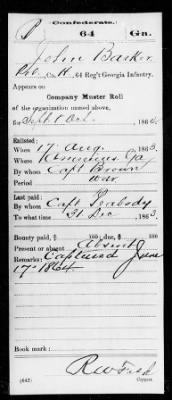 Confederate.
P 64 Ga.
John Barker
Pvt, Co. H, 64 Reg't Georgia Infantry.
Appears on
Company Muster Roll
of the organization named above,
for Sept & Oct, 1864.
Enlisted:
When 17 Aug, 1863.
Where Americus Ga
By whom Capt Brown
Period war
Last paid:
By whom Capt. Peabody
To what time 31 Dec, 1863.
Bounty paid, $ 186 ; due, $ 186
Present or absent Absent
Remarks: Captured June
17-1864
Book mark:
(642) Copyist.